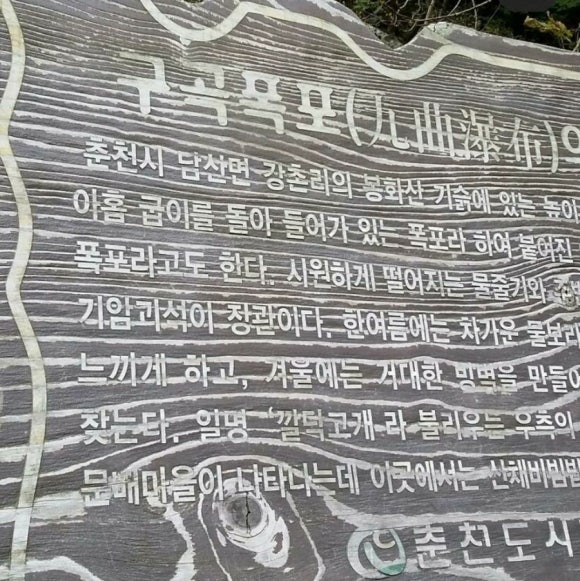 구곡폭포(九曲瀑布)의
춘천시 남산면 강촌리의 봉화산 기슭에 있는 높이
아홉 굽이를 돌아 들어가 있는 폭포라 하여 붙어진
폭포라고도 한다. 시원하게 떨어지는 물줄기와 주변
기암괴석이 장관이다. 한여름에는 차가운 물보라
느끼게 하고, 겨울에는 거대한 빙벽을 만들어
찾는다. 일명 '깔딱고개 라 불리우는 우측의
문배마을이 나타나는데 이곳에서는 산채비빔밥
춘천도시